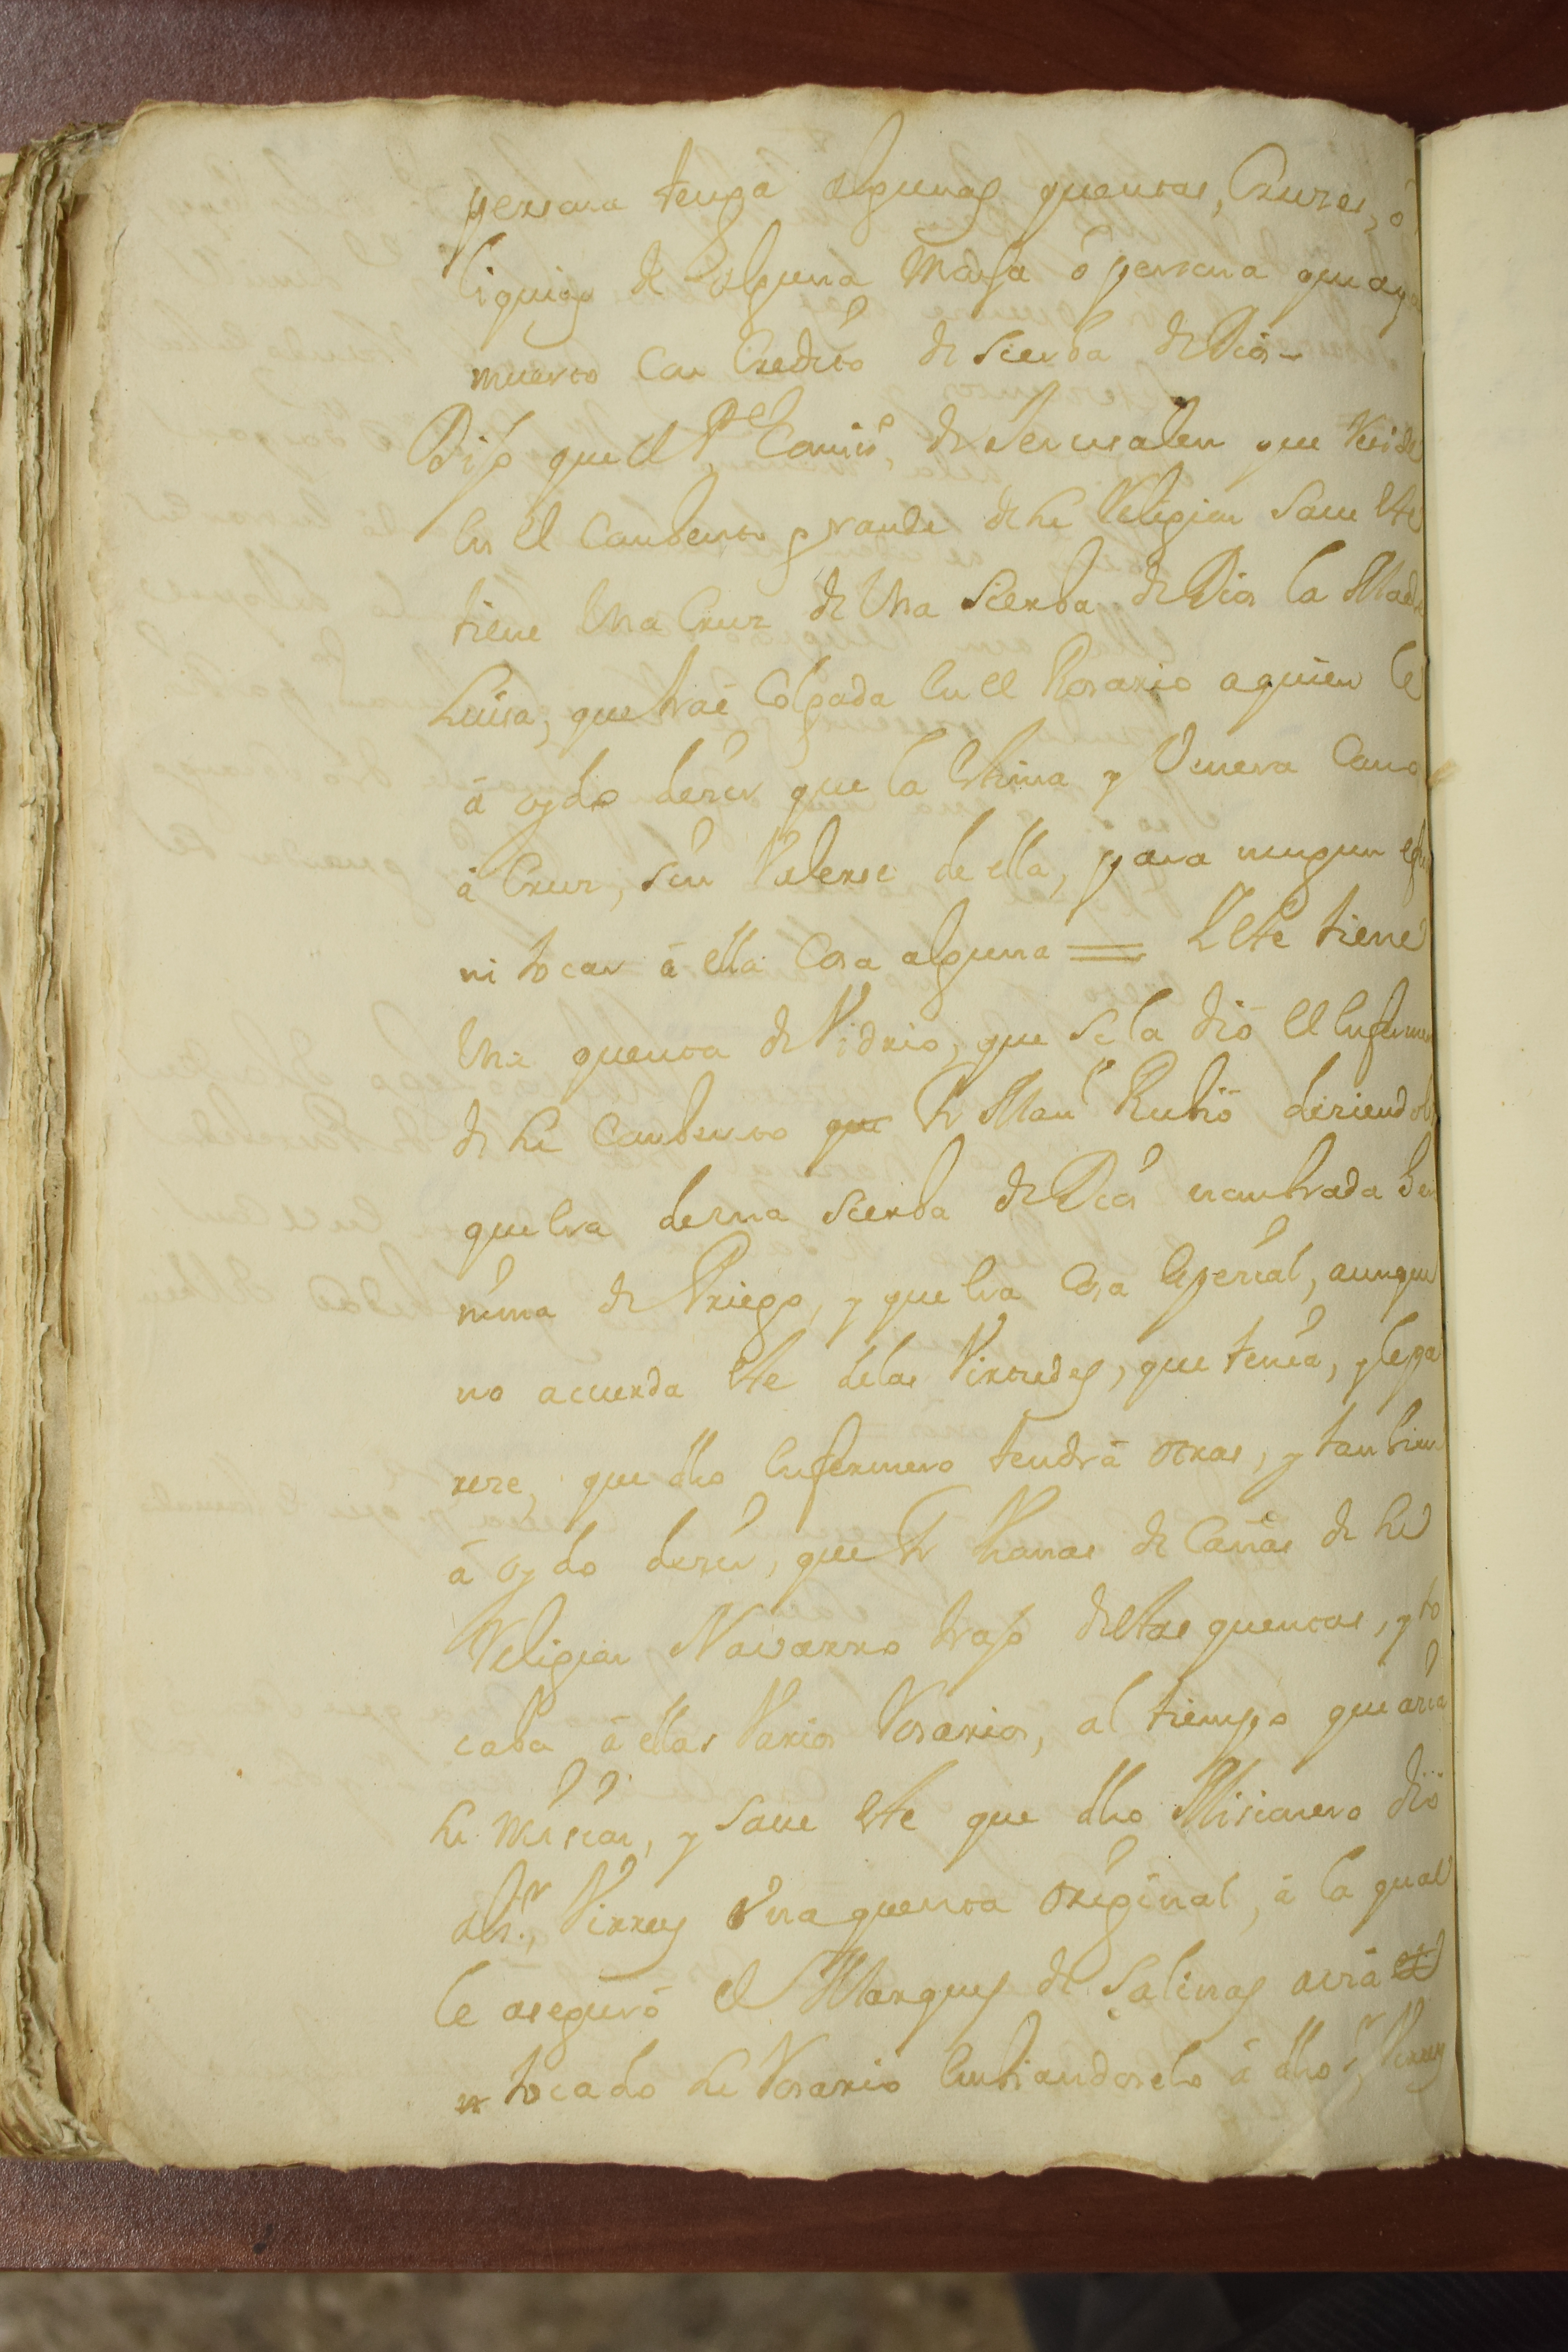 persona tenga algunas quentas, Cruzes, ò
liquias de alguna Monja ò persona que aya
muerto con Credito de sierba de Dios
Dijo que el Pe Comiso de Jerusalen que Reside
en el Conbento grande de su Religion saue este
tiene Una Cruz de Una Sierba de Dios la Madre
Luisa, que trae Colgada en el Rosario a quien le
à oydo dezir que la estima y Venera Como
à Cruz, sin Valerse de ella, para ningun efec
ni tocar à ella Cosa alguna = Y este tiene
Una quenta de Vidrio, que se la diò el enferme
de su Conbento que Fr Manl Rubiò diziendole
que era de una Sierba de Dios nonbrada
de Priego, y que era Cosa espezial, aunque
no acuerda este de las Virtudes, que tenia, y le pa
reze, que dho enfermero tendrà otras, y tanbien
à oydo dezir, que Fr Thomas de Cañas de su
Religion Navarro trajo destas quentas, y to
caba à ellas Varios Rosarios, al tiempo que azia
su mision, y saue este que dho Misionero diò
al Sr Virrey una quenta original, à la qual
le asegurò el Marques de Salinas avia
tocado su Rosario enbiandoselo à dho Sr Virrey